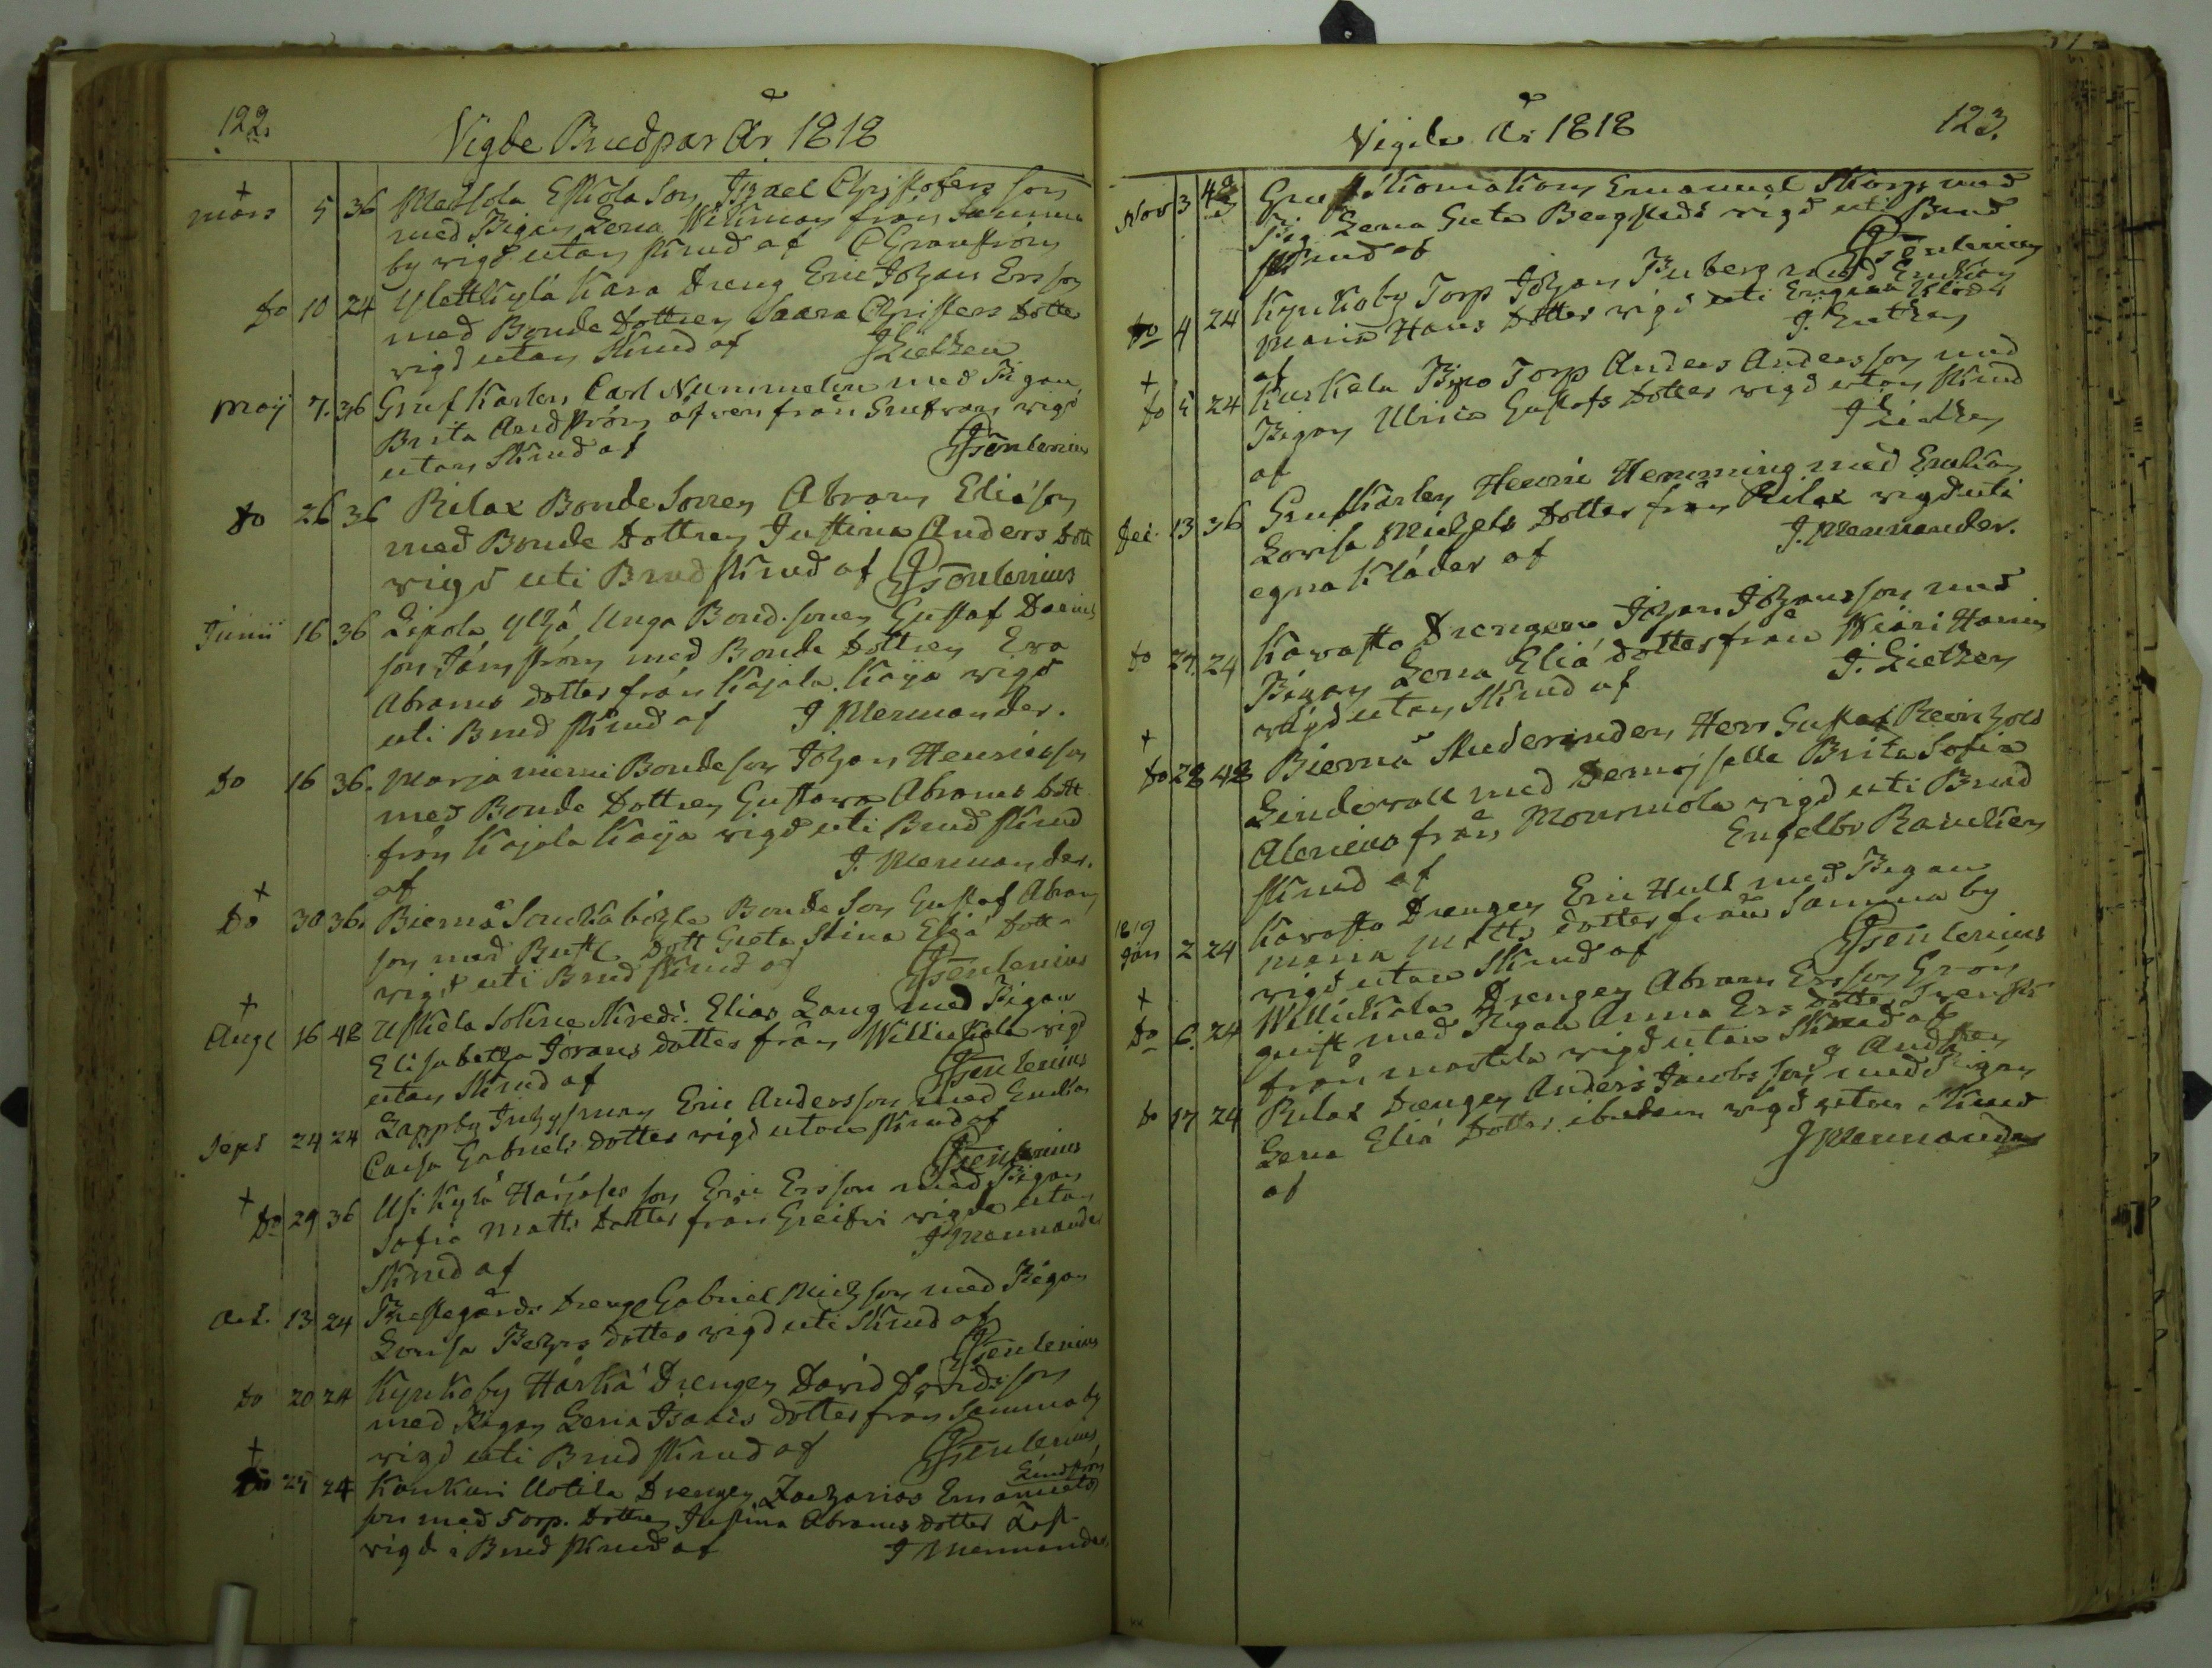 122.
Vigde Brudpar År 1818
Mars 5 36 Metsola Eskola Son Israel Christofers son
med Pigan Lena Wikman från Samma
by vigd utan skrud af C Granström
do 10 24 Ylettkylä Kara Dreng Eric Johan Ersson
med Bonde Dottren Saara Christers Dotter
vigd utan skrud af J Lietzen
Maij 7. 36 Gruf Karlen Carl Nummelin med Pigan
Brita Andström äfven från Grufvan vigd
utan skrud af
do 26 36 Rilax Bonde Sonen Abram Eliäson
med Bonde Dottren Justina Anders Dott
vigd uti Brud skrud af
Junii 16 36 Lipola Yhä Unga Bond. sonen Gustaf
son Järnström med Bonde Dottren Eva
Abrams dotter från Kajala Kaija vigd
uti Brud skrud af J Mennander.
do 16 36. Marjaniemi Bondeson Johan Henricsson
med Bonde Dottren Gustava Abrams dott
från Kajala Kaija vigd uti Brud skrud
af J. Mennander.
do 30 36. Biernå Bonde Son Gustaf Abram
son med Dott Greta Stina Eliä Dott
vigd uti Brud skrud af
Aug 16 48 Uskela Sokne Skredd. Elias Lang med Pigan
Elisabetha Görans dotter från Williskala vigd
utan skrud af
Sept 24 24 Lappby Inhysman Eric Andersson med Enkan
Caisa Gabriels dotter vigd utan skrud af
do 29 36 Uskylä Harjas son Eric Ersson med Pigan
Sofia Matts Dotter från vigde utan
skrud af J Mennander
Oct. 13 24 Prestegårds Dreng Gabriel Michson med Pigan
Lovisa Pehrs dotter vigd uti skrud af
do 20 24 Kyrkoby Härkä Drengen David Davidsson
med Pigan Lena Isaacs dotter från Samma by
vigd uti Brud skrud af
do 25 24 Kaukuri Uotila Drengen Zacharias Emanuels Lindström
son med Torp. Dottren Justina Abrams dotter
vigd i Brud skrud af J Mennander
Vigde År 1818
123.
Nov 3 48 Gruf Skomakaren Emanuel Skogs med
Pig Lena Greta Bergstedt vigd uti Brud
skrud af
do 4 24 Kyrkoby Torp Johan Fruberg med Enkan
Maria Hans Dotter vigd uti Engna Kläder
af J. Lietzen
do 5 24 Kurkela Torp Anders Andersson med
Pigan Ulrica Gustafs Dotter vigd utan skrud
af J Lietzen
Dec. 13 36 Grufkarlen Henric Hemming med Enkan
Lovisa Michels Dotter från Rilax vigd uti
egna Kläder af J. Mennander.
do 27. 24 Kavasto Drengen Johan Johansson med
Pigan Lena Eliä dotter från
vigd utan skrud af J. Lietzen
do 28 48 Biernå Studeranden Herr Gustaf Reinhold
Lindevall med Demoiselle Brita Sofia
Alcenius från Mourmola vigd uti Brud
skrud af Engelbr Rancken
1819
Jan 2 24 Kavasto Drengen Eric Hult med Pigan
Maria Matts dotter från Samma by
vigd utan skrud af
do 6. 24 Willickala Drengen Abram Ersson Grön
quist med Pigan Anna Ers dotter
från Martila vigd utan skrud af
do 17 24 Rilax Drengen Anders Jacobs son med Pigan
Lena Eliä Dotter ibidem vigd utan skrud
af J Mennander